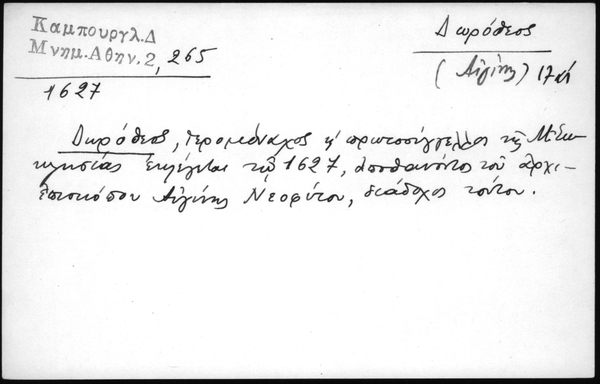 Καμπουργλ.Δ
Μνημ.Αθην.2, 265
1627
Δωρόθεος
(Αἰγίνης) 17 αἰ
Δωρόθεος, ἱερομόναχος κ' πρωτοσύγγελλος τῆς Μ. Ἐκκ
λησίας ἐκλέγεται τῷ 1627, ἀποθανόντος τοῦ ἀρχι-
επισκόπου Αἰγίνης Νεοφύτου, διάδοχος τούτου.